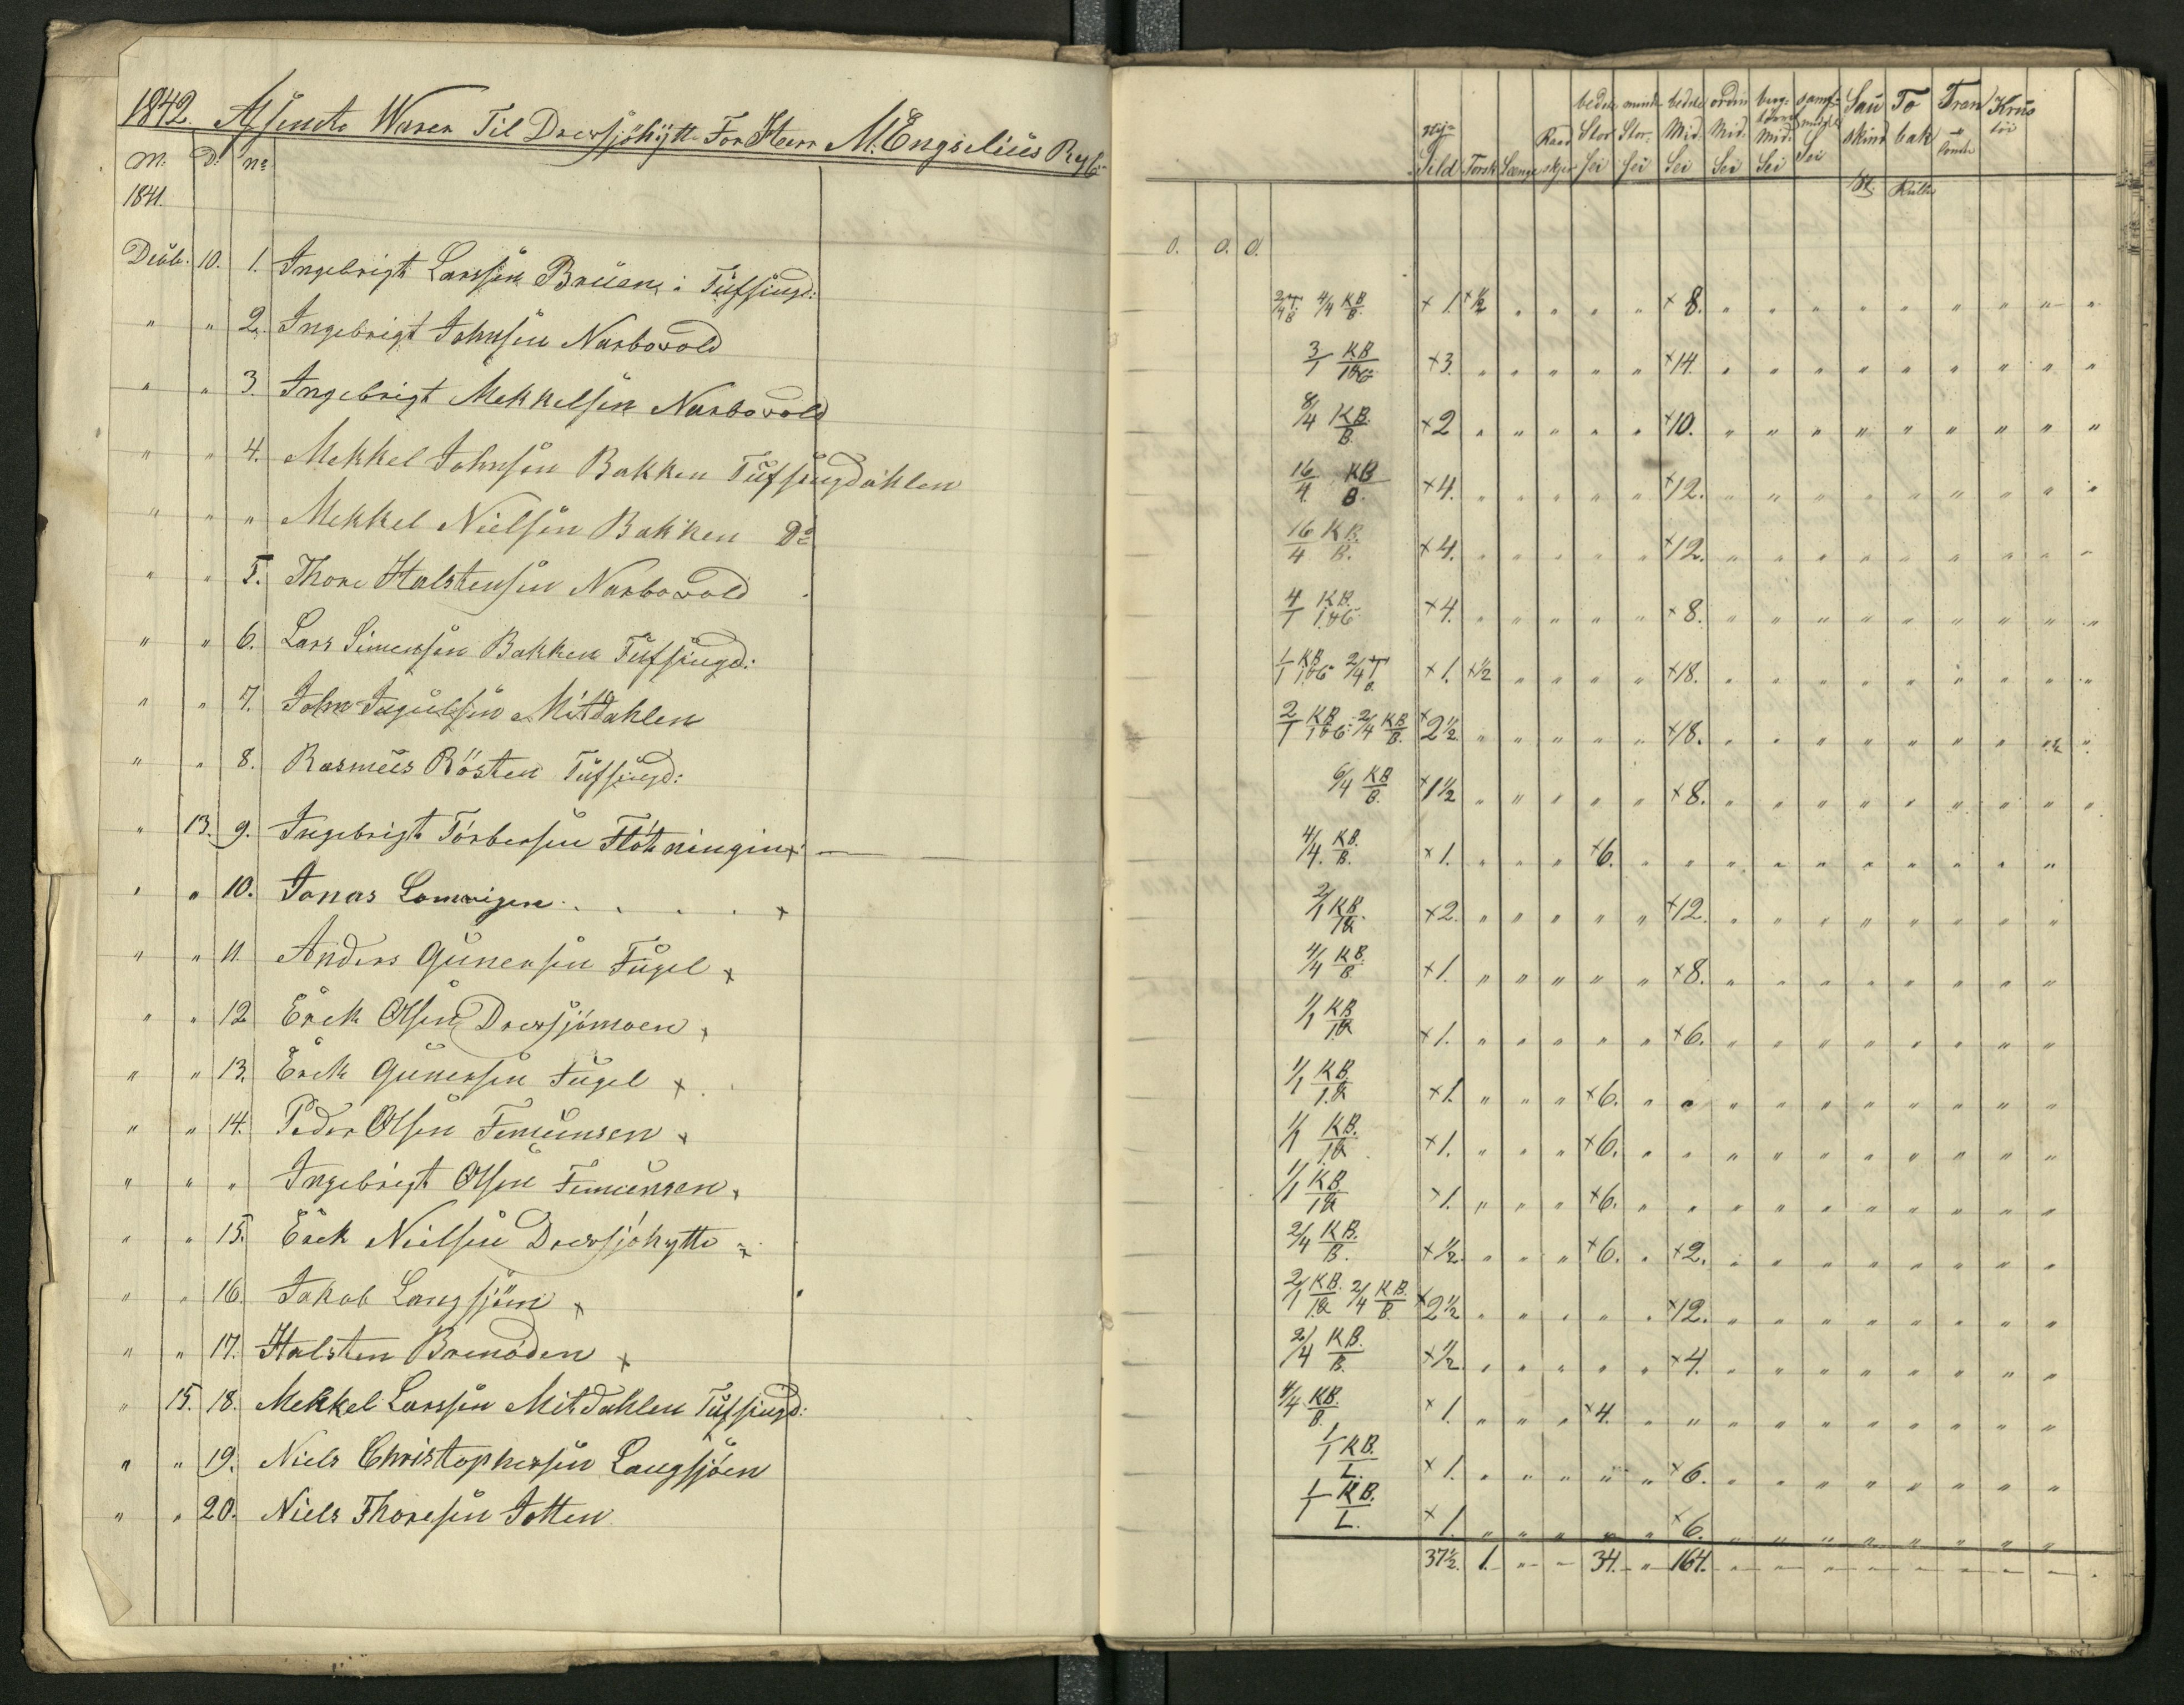 1842. Afsendte Warer Til Drevsjöhytt For Herr M. Engelius Ryb:
M: D: No
1841.
Decbr. 10. 1. Ingebrigt Larssen Bruen i Tufsingd:
" " 2. Ingebrigt Johnsen Narbovold
" " 3. Ingebrigt Mekkelsen Narbovold
" " 4. Mekkel Johnsen Bakken Tufsingdahlen
" " " Mekkel Nielsen Bakken Do
" " 5. Thore Halstensen Narbovold
" " 6. Lars Simensen Bakken Tufsingd:
" " 7. John Ingulfsen Mitdahlen
" " 8. Rasmus Rösten Tufsingd:
" 13. 9. Ingebrigt Torbersen Flötningen +
" " 10. Jonas Lomvigen . . . . +
" " 11. Anders Gunersen Fugel +
" " 12. Erek Olsen Drevsjömoen +
" " 13. Erek Gunersen Fugel +
" " 14. Peder Olsen Femunsen +
" " " Ingebrigt Olsen Femunsen +
" " 15. Erek Nielsen Drevsjöhytte +
" " 16. Jakob Langsjöen +
" " 17. Halsten Brenöden +
" 15. 18. Mekkel Larssen Mitdahlen Tufsingd:
" " 19. Niels Christophersen Langsjöen
" " 20. Niels Thoresen Jotten
Sild Torsk Længe Raadskjer bedste Stor Sei mindre Stor Sei bedste Mid. Sei ordin Mid. Sei Mid. Sei Sei Sauskind To bak Tran Krus töi
St. Rulle
0. 0. 0.
2/4 T/B 4/4 KB/B. +1. +½ " " " " +8. " " " " " " " " "
3/1 KB +3. " " " " " +14. " " " " " " " " "
8/4 KB/B. +2 " " " " " +10. " " " " " " " " "
16/4 KB/B. +4. " " " " " +12. " " " " " " " " "
16/4 KB/B. +4. " " " " " +12. " " " " " " " " "
4/1 KB. +4. " " " " " +8. " " " " " " " " "
1/1 KB 2/4 T/B. +1. +½ " " " " +18. " " " " " " " " "
2/1 KB 2/4 KB/B. +2½ " " " " " +18. " " " " " " " " "
6/4 KB/B. +1½ " " " " " +8. " " " " " " " " "
4/4 KB/B. +1. " " " +6. " " " " " " " " " "
2/1 KB. +2. " " " " " +12. " " " " " " " "
4/4 KB/B +1. " " " " " +8. " " " " " " " "
1/1 KB +1. " " " " " +6. " " " " " " " "
1/1 KB. +1. " " " +6. " " " " " " " " " "
1/1 KB. +1. " " " +6. " " " " " " " " " "
1/1 KB +1. " " " +6. " " " " " " " " " "
2/4 KB/B. +½ " " " +6. " +2. " " " " " " " "
2/1 KB. 2/4 KB/B. +2½ " " " " " +12. " " " " " " " "
2/4 KB/B. +½ " " " " " +4. " " " " " " " "
4/4 KB/B. +1. " " " +4. " " " " " " " " " "
1/1 KB./L. +1. " " " " " +6. " " " " " " " "
1/1 KB./L. +1. " " " " " +6. " " " " " " " "
37½. 1. " " 34. " 164. " " " " " " " "